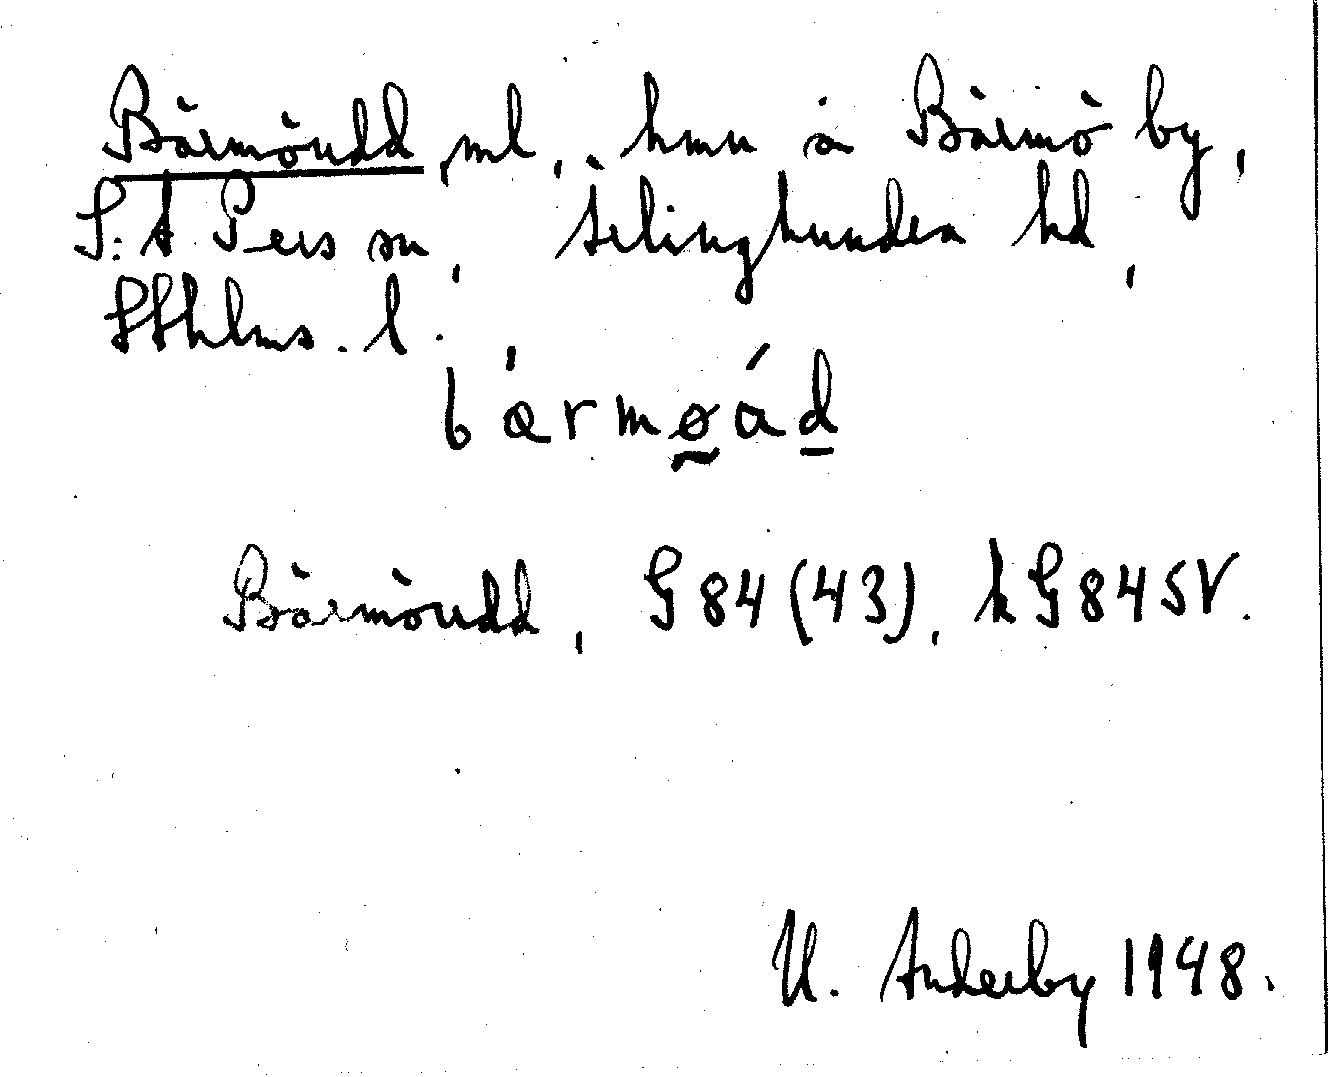 Bärmöudd, ml., hmn å Bärmö by,
S:t Pers sn, Ärlinghundra hd,
Sthlms. l.
b ǽ r m ø á d
Bärmöudd, G 84 (43), hG 84 SV.
U. 1948.